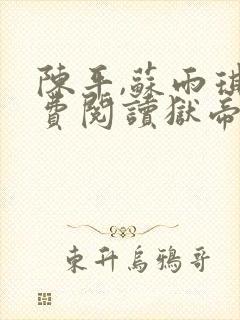 陳平,蘇雨琪
費閱讀獄帝
東升烏鴉哥